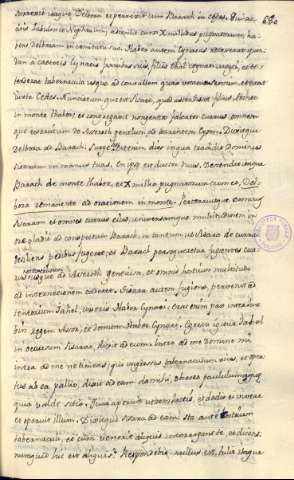 surrexit itaque Delbora et perrexit cum Barach in Cedes. Qui acci
tis Zabulon et Nephtalim, ascendit cum X millibus pugnatorum, ha
bens Delboram in comitatu suo. Haber autem Cyneus recesserat quon
dam a caeteris Cyneis fratribus suis, filiis Obal cognati Moysi, et te
tenderat tabernacula usque ad convallem quae vocatur Sennim, et erat
iuxta Cedes. Nunciatum que est Sisare, quod ascendisset filius Abinoe
in monte Thabor, et congregavit nongentos falcatos currus omnem
que exercitum de Haroseth gentium ad torrentem Cyson. Dixitque
Delbora ad Barach, surge haec est enim dies in qua tradidit Dominus
Sisaram in manus tuas. En ipse est ductor tuus. Descendit itaque
Barach de monte Thabor, et X millia pugnatorum cum eo, Del
bora remanente ad orationem in monte. Perterruitque Dominus
Sisaram et omnes currus eius, universamque multitudinem in
ore gladii ad conspectum Barach, in tantum ut Sisara de curru
desiliens pedibus fugeret, et Barach persequeretur fugientes curr
us usque ad Haroseth gentium, et omnis hostium multitudo
ad internecionem caderet. Sisara autem fugiens, pervenit ad
tentorium Iahel, uxoris Haber Cynei. Erat enim pax inter Ia
bin regem Asor, et domum Haber Cynei. Egressa igitur Iahel
in occursum Sisarae, dixit ad eum intra ad me Domine mi
intra ad me ne timeas, qui ingressus tabernaculum eius, et oper
tus ab ea pallio, dixit ad eam da mihi, obsecro paululum aquae
quia valde sitio.
et operuit illum. Dixitque Sisara ad eam sta ante ostium
tabernaculi, et cum venerit aliquis interrogans te, et dicens,
numquid hic est aliquis? Respondebis, nullus est. tulit itaque